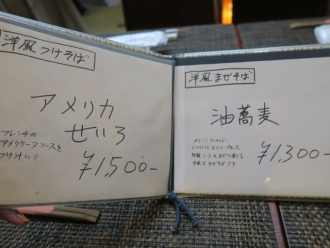 洋風つけそば
アメリカ
せいろ
フレンチの
アメリケーヌソースを
つけて!!
¥1,500-
洋風まぜそば
油蕎麦
¥1,300-